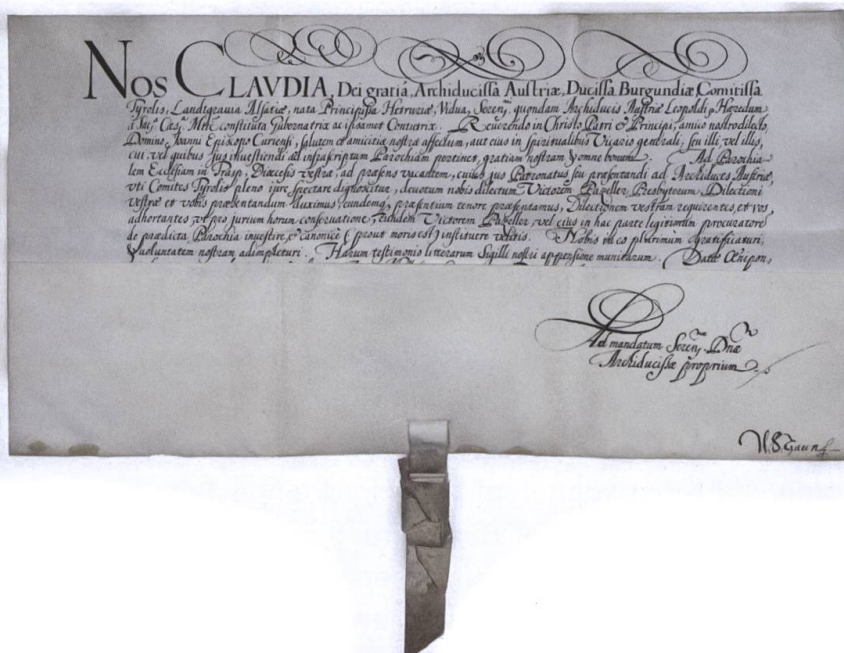 NOS CLAVDIA, Dei gratiâ, Archiducissa Austriæ, Ducissa Burgundiæ, Comitissa
Tyrolis, Landtgravia Alsatiæ, nata Principissa Hetruriæ, Vidua, Serenmi quondam Archiducis Austriæ Leopoldi, Hæredum
à Sacr. Cæs. Mte constituta Gubernatrix ac ipsamet Contutrix. Reverendo in Christo Patri & Principi, amico nostro dilecto,
Domino Joanni Episcopo Curiensi, salutem et amicitiæ nostræ affectum, aut eius in spiritualibus Vicario generali, seu illi, vel illis,
cui, vel quibus Jus investiendi ad infrascriptam Parochiam pertinet, gratiam nostram & omne bonum. Ad Parochia-
lem Ecclesiam in Trasp, Diœcesis vestræ, ad præsens vacantem, cuius Jus Patronatus seu præsentandi ad Archiduces Austriæ,
uti Comites Tyrolis pleno jure spectare dignoscitur, devotum nobis dilectum Victorem Pazeller, Presbyterum, Dilectioni
vestræ et vobis præsentandum duximus, eundemq. præsentium tenore præsentamus, Dilectionem vestram requirentes, et vos
adhortantes, ut pro jurium horum conservatione, eundem Victorem Pazeller, vel eius in hac parte legitimum procuratorē
de prædicta Parochia investire, & canonicè (prout moris est) instituere velitis. Nobis in eo plurimum gratificaturi,
& voluntatem nostram adimpleturi. Harum testimonio litterarum Sigilli nostri appensione munitarum. Datæ Œnipon,
Ad mandatum Serenmæ Dnæ
Archiducissæ proprium